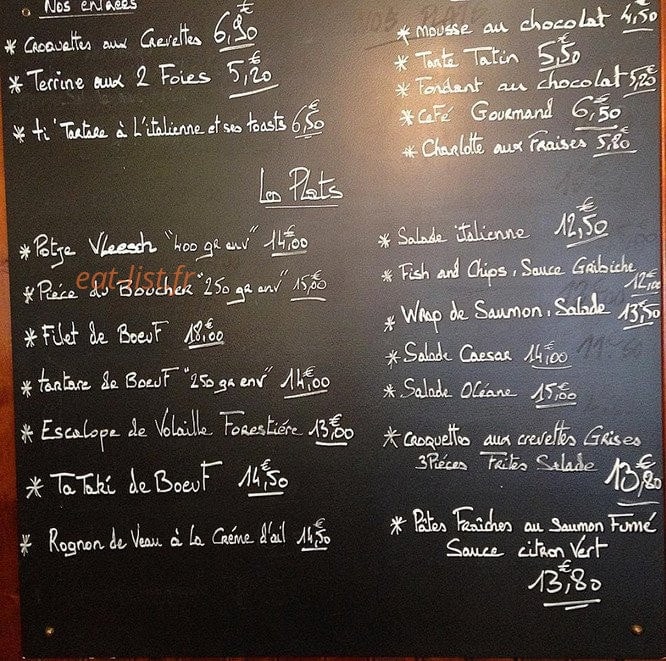 Nos entrées
* Croquettes aux Crevettes 6,90 €
* Terrine aux 2 Foies 5,20 €
* ti' Tartare à L'italienne et ses toasts 6,50 €
* Mousse au chocolat 4,50 €
* Tarte Tatin 5,50 €
* Fondant au chocolat 5,20 €
* Café Gourmand 6,50 €
* Charlotte aux Fraises 5,80 €
Les Plats
* Potje Vleesch "400 gr env" 14,00 €
* Piéce du Boucher "250 gr env" 15,00 €
* Filet de Boeuf 18,00 €
* tartare de Boeuf "250 gr env" 14,00 €
* Escalope de Volaille Forestiére 13,00 €
* TaTaki de Boeuf 14,50 €
* Rognon de Veau à La Créme d'ail 14,50 €
* Salade italienne 12,50 €
* Fish and Chips, Sauce Gribiche
12,00 €
* Wrap de Saumon, Salade 13,50 €
* Salade Caesar 14,00 €
* Salade Océane 15,00 €
* Croquettes aux crevettes Grises
3 Piéces Frites Salade 13,80 €
* Pâtes Fraîches au Saumon Fumé
Sauce citron Vert
13,80 €
eat-list.fr